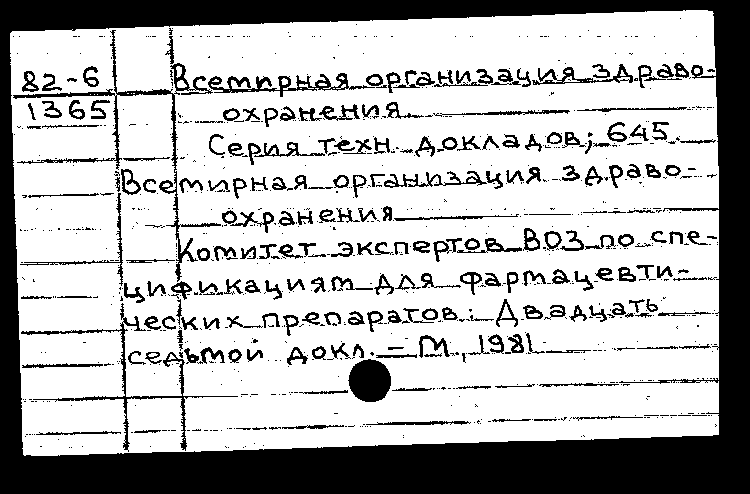 82-6
1365
Всемирная организация здраво-
охранения.
Серия техн. докладов; 645.
Всемирная организация здраво-
охранения
Комитет экспертов ВОЗ по спе-
цификациям для фармацевти-
ческих препаратов: Двадцать
седьмой докл. – М., 1981